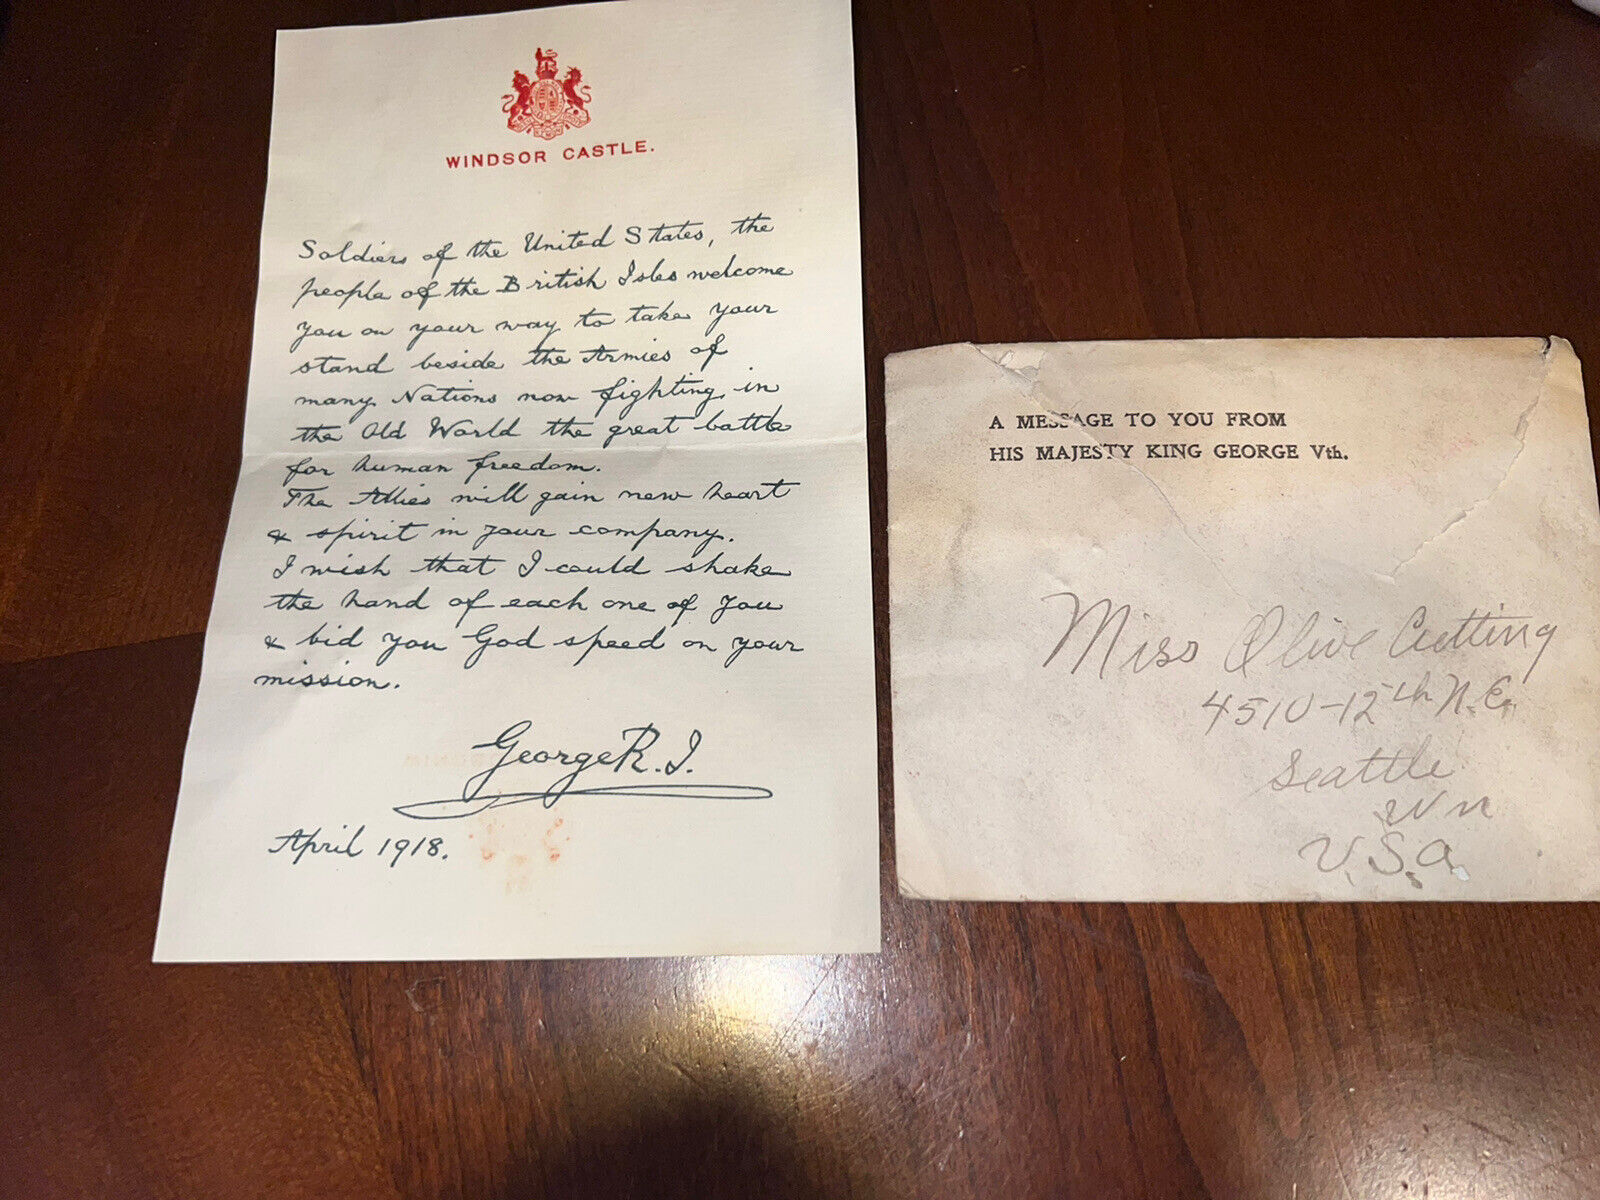 WINDSOR CASTLE.
Soldiers of the United States, the
people of the British Isles welcome
you on your way to take your
stand beside the Armies of
many Nations now fighting in
the Old World the great battle
for human freedom.
The Allies will gain new heart
& spirit in your company.
I wish that I could shake
the hand of each one of you
& bid you God speed on your
mission.
George R.I.
April 1918.
A MESSAGE TO YOU FROM
HIS MAJESTY KING GEORGE Vth.
Miss Olive Cutting
4510-12th N.E.
Seattle
Wn
U.S.A.